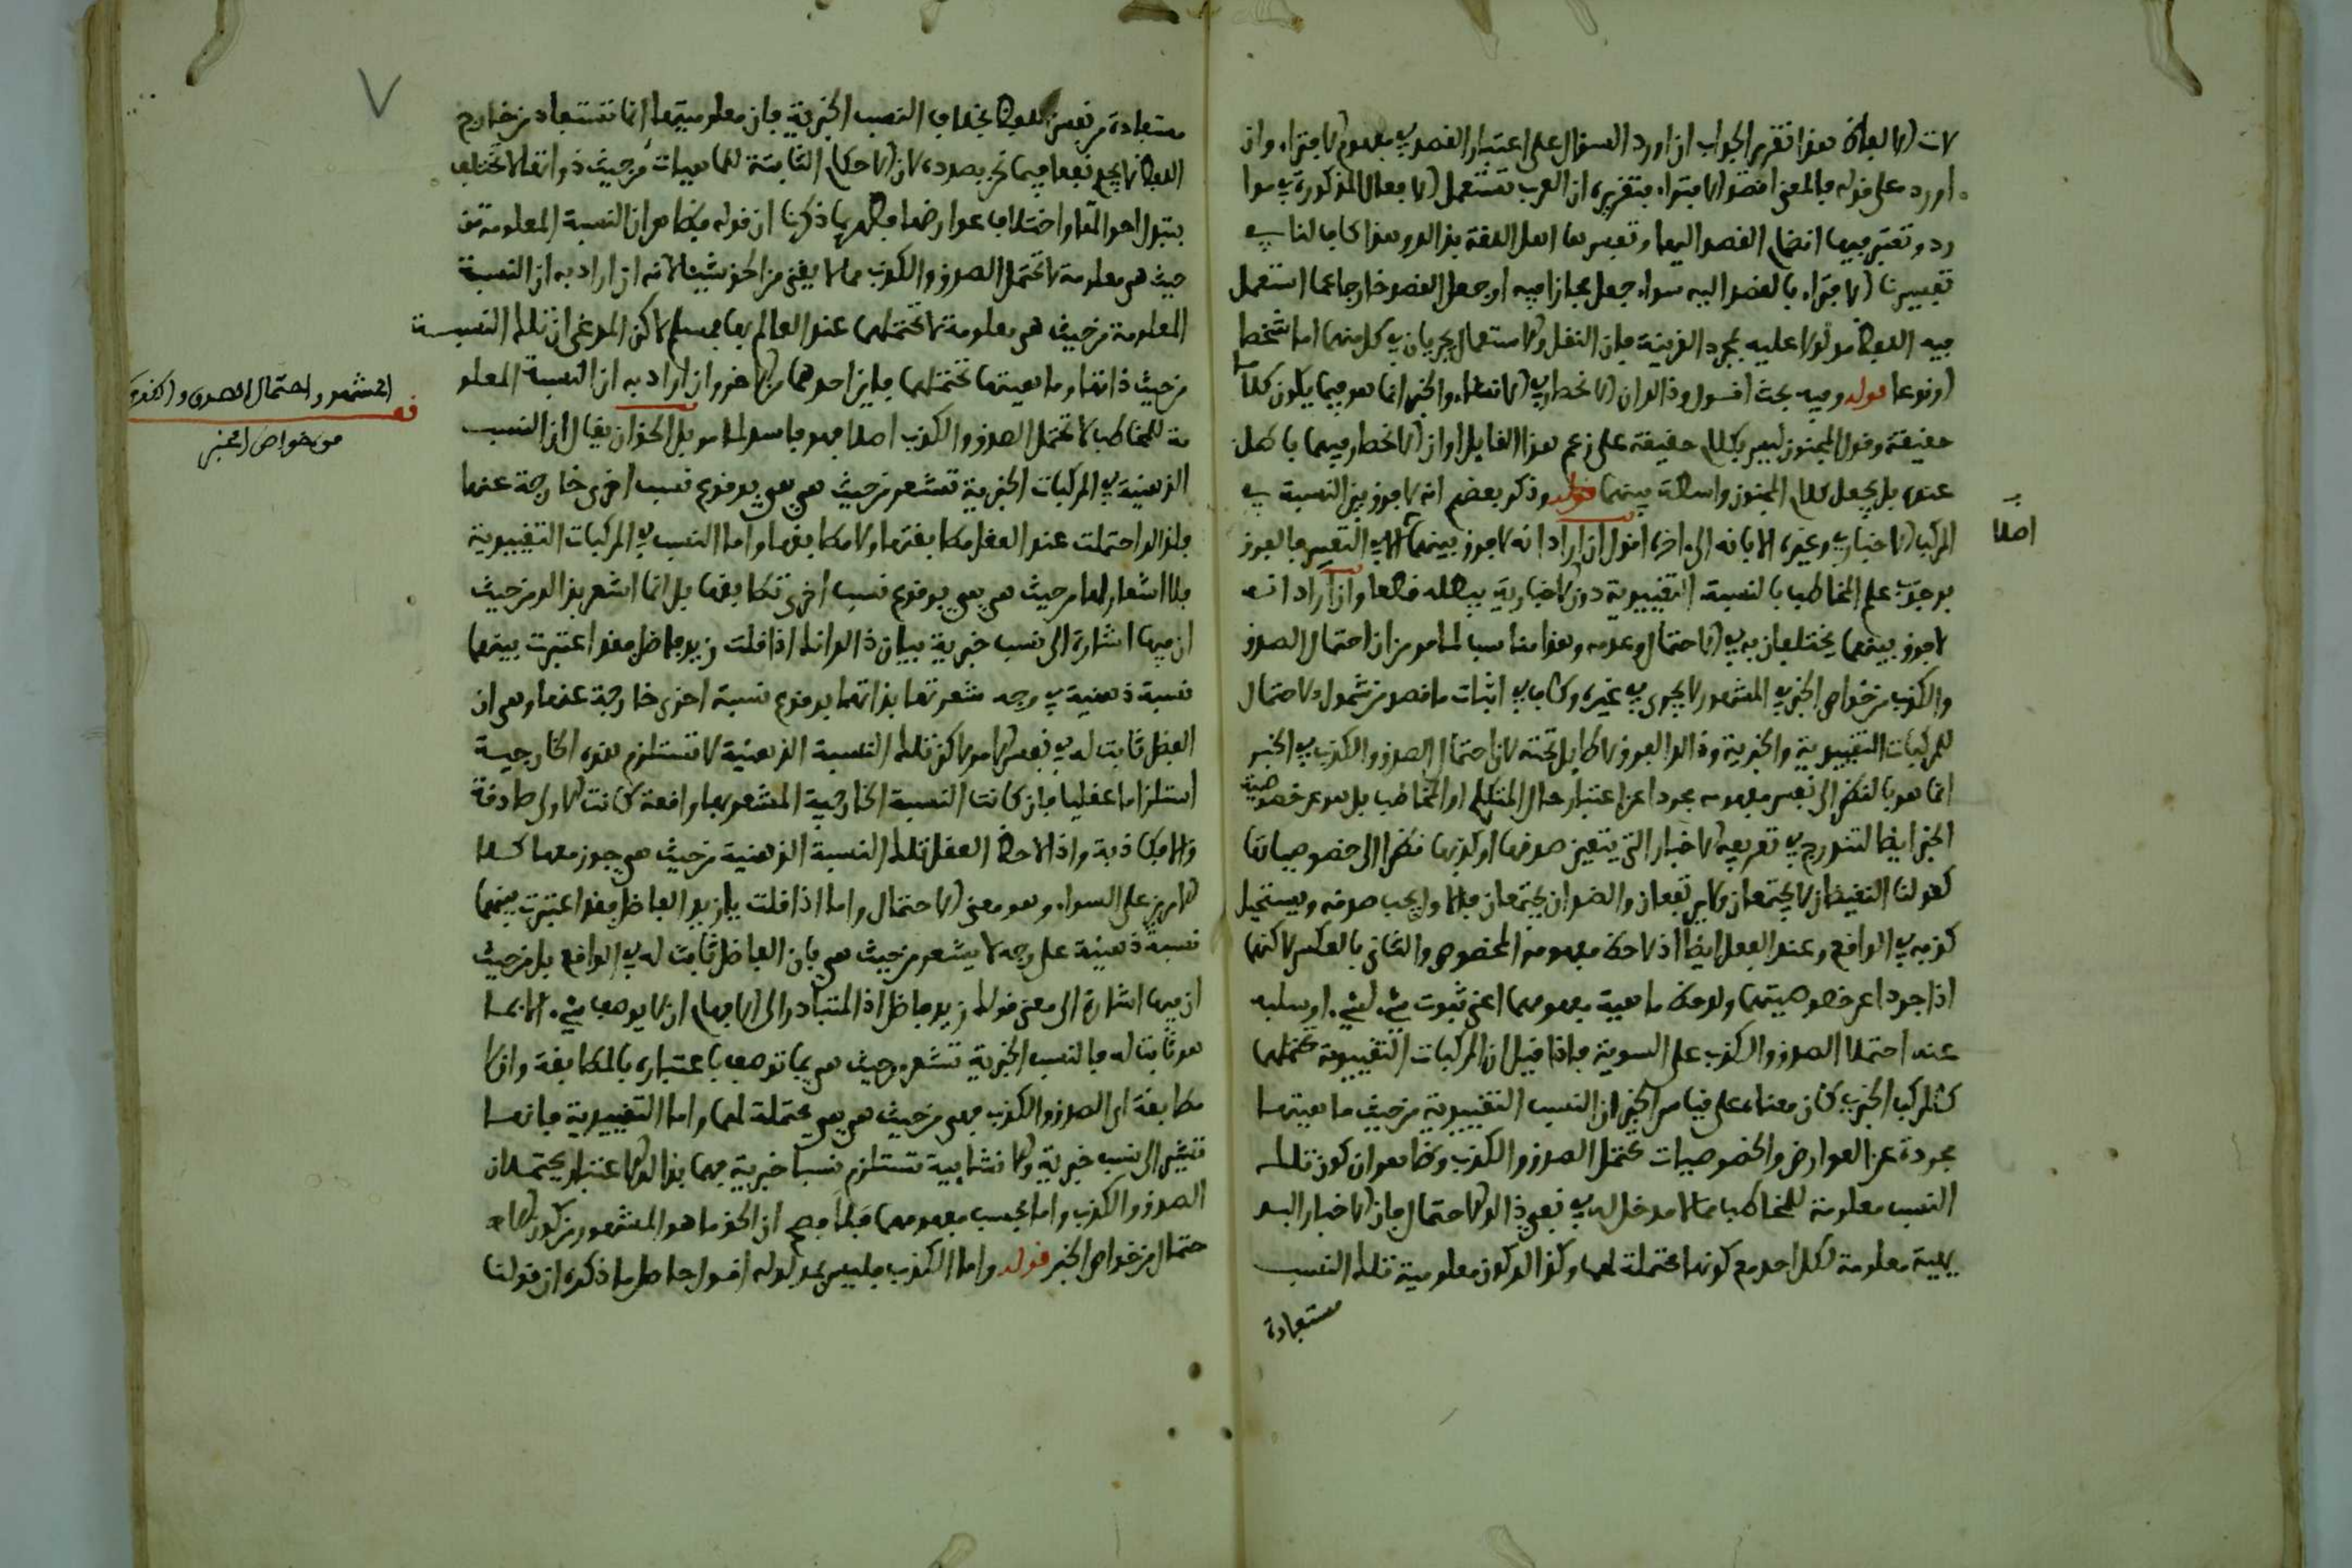 لات الالفاظ هذا تقرير الجواب ان اورد السؤال على اعتبار القصد في مفهوم الاجتراء وان
اورد على قوله فالمعنى اقصدوا الاجتراء فتقريره ان العرب تستعمل الافعال المذكورة في موا
رد وتعتبر فيها انضمام القصد اليها وتفسيرها اهل اللغة بذلك وهذا كاف لنا في
تفسيرنا الاجتراء بالقصد اليه سواء جعل مجازا فيه او جعل القصد خارجا عما استعمل
فيه اللفظ مدلولا عليه بمجرد القرينة فان النقل والاستعمال يجريان في كل منهما اما شخصا
او نوعا قوله وفيه بحث اقول وذلك ان الاخطار في الانشاء والخبر انما هو فيما يكون كلاما
حقيقة وقول المجنون ليس بكلام حقيقة على زعم هذا القايل او ان الاخطار فيهما باطل
عنده بل يجعل كلام المجنون واسطة بينهما قوله وذكر بعضهم انه لا فرق بين النسبة في
المركب الاخباري وغيره الا بانه الى اخره اقول ان اراد انه لا فرق بينهما اصلا الا في التعبير فالفرق
بوجوب علم المخاطب بالنسبة التقييدية دون الاخبارية يبطله قطعا وان اراد انه
لا فرق بينهما يختلفان به في الاحتمال وعدمه وهذا مناسب لما مر من ان احتمال الصدق
والكذب من خواص الخبر في المشهور لا يجري في غيره وكاف في اثبات ما قصد من شمول الاحتمال
للمركبات التقييدية والخبرية وذلك الفرق لا طايل تحته لان احتمال الصدق والكذب في الخبر
انما هو بالنظر الى نفس مفهومه مجردا عن اعتبار حال المتكلم او المخاطب بل هو عن خصوصية
الخبر ايضا لتندرج في تعريفه الاخبار التي يتعين صدقها او كذبها نظرا الى خصوصياتها
كقولنا النقيضان لا يجتمعان ولا يرتفعان والضدان يجتمعان فالاول يجب صدقه ويستحيل
كذبه في الواقع وعند العقل ايضا اذا لاحظ مفهومه المخصوص والثاني بالعكس لاكنهما
اذا جردا عن خصوصيتهما ولوحظ ماهية مفهومهما اعني ثبوت شيء لشيء او سلبه
عنه احتملا الصدق والكذب على السوية فاذا قيل ان المركبات التقييدية تحتملهما
كالمركب الخبري كان معناه على قياس الخبر ان النسب التقييدية من حيث ماهيتها
مجردة عن العوارض والخصوصيات تحتمل الصدق والكذب وظاهر ان كون تلك
النسب معلومة للمخاطب مما لا مدخل له في نفي ذلك الاحتمال فان الاخبار البد
يهية معلومة لكل احد مع كونها محتملة لهما وكذلك كون معلومية تلك النسب
مستفادة
اصلا
٧
مستفادة من نفس اللفظ بخلاف النسب الخبرية فان معلوميتها انما تستفاد من خارج
اللفظ لا يجدي نفعا فيما نحن بصدده لان الاحكام الثابتة للماهيات من حيث ذواتها لا تختلف
بتبدل احوالها واختلاف عوارضها فظهر بما ذكرنا ان قوله فظاهر ان النسبة المعلومة من
حيث هي معلومة لا تحتمل الصدق والكذب مما لا يغني من الحق شيئا لانه ان اراد به ان النسبة
المعلومة من حيث هي معلومة لا تحتملهما عند العالم بها فمسلم لاكن المدعى ان تلك النسبة
من حيث ذاتها وماهيتها تحتملهما فاين احدهما من الاخر وان اراد به ان النسبة المعلو
مة للمخاطب لا تحتمل الصدق والكذب اصلا فهو فاسد لما مر بل الحق ان يقال ان النسب
الذهنية في المركبات الخبرية تشعر من حيث هي هي بوقوع نسب اخرى خارجة عنها
فلذلك احتملت عند العقل مطابقتها ولا مطابقتها واما النسب في المركبات التقييدية
فلا اشعار لها من حيث هي هي بوقوع نسب اخرى تطابقها بل انما اشعر بذلك من حيث
ان فيها اشارة الى نسب خبرية بيان ذلك انك اذا قلت زيد فاضل فقد اعتبرت بينهما
نسبة ذهنية في وجه مشعر تها بذاتها بوقوع نسبة اخرى خارجة عنها وهي ان
الفضل ثابت له في نفس الامر لاكن تلك النسبة الذهنية لا تستلزم هذه الخارجية
استلزاما عقليا فان كانت النسبة الخارجية المشعر بها واقعة كانت الاولى صادقة
والا فكاذبة واذا لاحظ العقل تلك النسبة الذهنية من حيث هي جوز معها كلا
الامرين على السواء وهو معنى الاحتمال واما اذا قلت يا زيد الفاضل فقد اعتبرت بينهما
نسبة ذهنية على وجه لا يشعر من حيث هي بان الفاضل ثابت له في الواقع بل من حيث
ان فيها اشارة الى معنى قولك زيد فاضل اذ المتبادر الى الافهام ان لا يوصف شيء الا بما
هو ثابت له فالنسب الخبرية تشعر من حيث هي بما توصف باعتباره بالمطابقة واللا
مطابقة اي الصدق والكذب فهي من حيث هي هي محتملة لهما واما التقييدية فانها
تشير الى نسب خبرية والانشايية تستلزم نسبا خبرية فهما بذلك الاعتبار يحتملان
الصدق والكذب واما بحسب مفهومهما فلا فصح ان الحق ما هو المشهور من كون الا
حتمال من خواص الخبر قوله واما الكذب فليس بمدلوله اقول حاصل ما ذكره ان قولنا
قف المشهور احتمال الصدق والكذب
من خواص الخبر